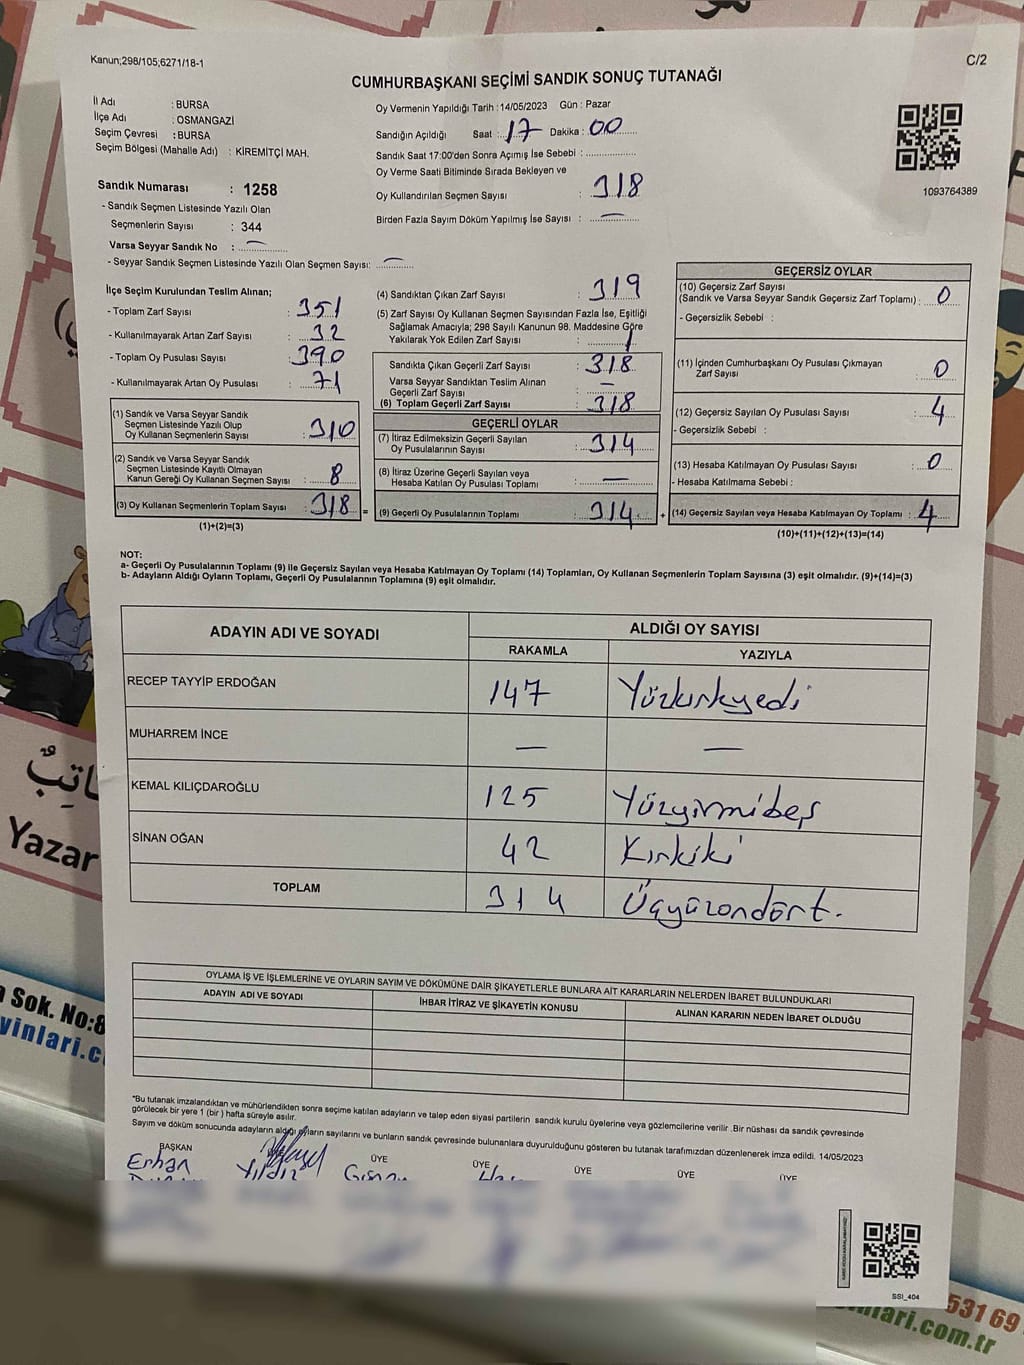 Kanun;298/105;6271/18-1
C/2
CUMHURBAŞKANI SEÇİMİ SANDIK SONUÇ TUTANAĞI
İl Adı : BURSA
İlçe Adı : OSMANGAZİ
Seçim Çevresi : BURSA
Seçim Bölgesi (Mahalle Adı) : KİREMİTÇİ MAH.
Sandık Numarası : 1258
- Sandık Seçmen Listesinde Yazılı Olan
Seçmenlerin Sayısı : 344
Varsa Seyyar Sandık No : —
- Seyyar Sandık Seçmen Listesinde Yazılı Olan Seçmen Sayısı: —
Oy Vermenin Yapıldığı Tarih :14/05/2023 Gün : Pazar
Sandığın Açıldığı Saat : 17 Dakika : 00
Sandık Saat 17:00'den Sonra Açımış İse Sebebi :
Oy Verme Saati Bitiminde Sırada Bekleyen ve
Oy Kullandırılan Seçmen Sayısı : 318
Birden Fazla Sayım Döküm Yapılmış İse Sayısı : —
1093764389
İlçe Seçim Kurulundan Teslim Alınan;
- Toplam Zarf Sayısı : 351
- Kullanılmayarak Artan Zarf Sayısı : 32
- Toplam Oy Pusulası Sayısı : 390
- Kullanılmayarak Artan Oy Pusulası : 71
(1) Sandık ve Varsa Seyyar Sandık
Seçmen Listesinde Yazılı Olup
Oy Kullanan Seçmenlerin Sayısı : 310
(2) Sandık ve Varsa Seyyar Sandık
Seçmen Listesinde Kayıtlı Olmayan
Kanun Gereği Oy Kullanan Seçmen Sayısı : 8
(3) Oy Kullanan Seçmenlerin Toplam Sayısı : 318 =
(1)+(2)=(3)
(4) Sandıktan Çıkan Zarf Sayısı : 319
(5) Zarf Sayısı Oy Kullanan Seçmen Sayısından Fazla İse, Eşitliği
Sağlamak Amacıyla; 298 Sayılı Kanunun 98. Maddesine Göre
Yakılarak Yok Edilen Zarf Sayısı : 1
Sandıkta Çıkan Geçerli Zarf Sayısı : 318
Varsa Seyyar Sandıktan Teslim Alınan
Geçerli Zarf Sayısı : —
(6) Toplam Geçerli Zarf Sayısı : 318
GEÇERLİ OYLAR
(7) İtiraz Edilmeksizin Geçerli Sayılan
Oy Pusulalarının Sayısı : 314
(8) İtiraz Üzerine Geçerli Sayılan veya
Hesaba Katılan Oy Pusulası Toplamı : —
(9) Geçerli Oy Pusulalarının Toplamı : 314 +
GEÇERSİZ OYLAR
(10) Geçersiz Zarf Sayısı
(Sandık ve Varsa Seyyar Sandık Geçersiz Zarf Toplamı) : 0
- Geçersizlik Sebebi :
(11) İçinden Cumhurbaşkanı Oy Pusulası Çıkmayan
Zarf Sayısı : 0
(12) Geçersiz Sayılan Oy Pusulası Sayısı : 4
- Geçersizlik Sebebi :
(13) Hesaba Katılmayan Oy Pusulası Sayısı : 0
- Hesaba Katılmama Sebebi :
(14) Geçersiz Sayılan veya Hesaba Katılmayan Oy Toplamı : 4
(10)+(11)+(12)+(13)=(14)
NOT:
a- Geçerli Oy Pusulalarının Toplamı (9) ile Geçersiz Sayılan veya Hesaba Katılmayan Oy Toplamı (14) Toplamları, Oy Kullanan Seçmenlerin Toplam Sayısına (3) eşit olmalıdır. (9)+(14)=(3)
b- Adayların Aldığı Oyların Toplamı, Geçerli Oy Pusulalarının Toplamına (9) eşit olmalıdır.
ADAYIN ADI VE SOYADI ALDIĞI OY SAYISI
RAKAMLA YAZIYLA
RECEP TAYYİP ERDOĞAN 147 Yüzkırkyedi
MUHARREM İNCE — —
KEMAL KILIÇDAROĞLU 125 Yüzyirmibeş
SİNAN OĞAN 42 Kırkiki
TOPLAM 314 Üçyüzondört.
OYLAMA İŞ VE İŞLEMLERİNE VE OYLARIN SAYIM VE DÖKÜMÜNE DAİR ŞİKAYETLERLE BUNLARA AİT KARARLARIN NELERDEN İBARET BULUNDUKLARI
ADAYIN ADI VE SOYADI İHBAR İTİRAZ VE ŞİKAYETİN KONUSU ALINAN KARARIN NEDEN İBARET OLDUĞU
*Bu tutanak imzalandıktan ve mühürlendikten sonra seçime katılan adayların ve talep eden siyasi partilerin sandık kurulu üyelerine veya gözlemcilerine verilir .Bir nüshası da sandık çevresinde
görülecek bir yere 1 (bir ) hafta süreyle asılır.
Sayım ve döküm sonucunda adayların aldığı oyların sayılarını ve bunların sandık çevresinde bulunanlara duyurulduğunu gösteren bu tutanak tarafımızdan düzenlenerek imza edildi. 14/05/2023
BAŞKAN ÜYE ÜYE ÜYE ÜYE ÜYE
Erhan Yıldız
SSI_404
Yazar
Sok. No:8
yinlari.c
531 69
nlari.com.tr